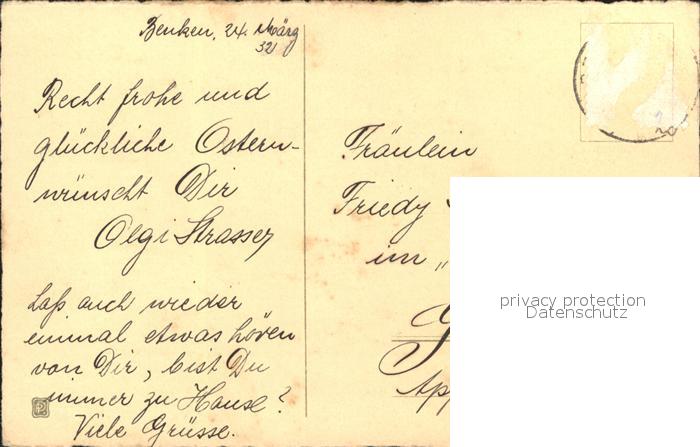 Benken, 24. März
32
Recht frohe und
glückliche Ostern
wünscht Dir
Olgi Strasser
Laß auch wieder
einmal etwas hören
von Dir, bist Du
immer zu Hause?
Viele Grüsse.
Fräulein
Friedy
im „
App
privacy protection
Datenschutz